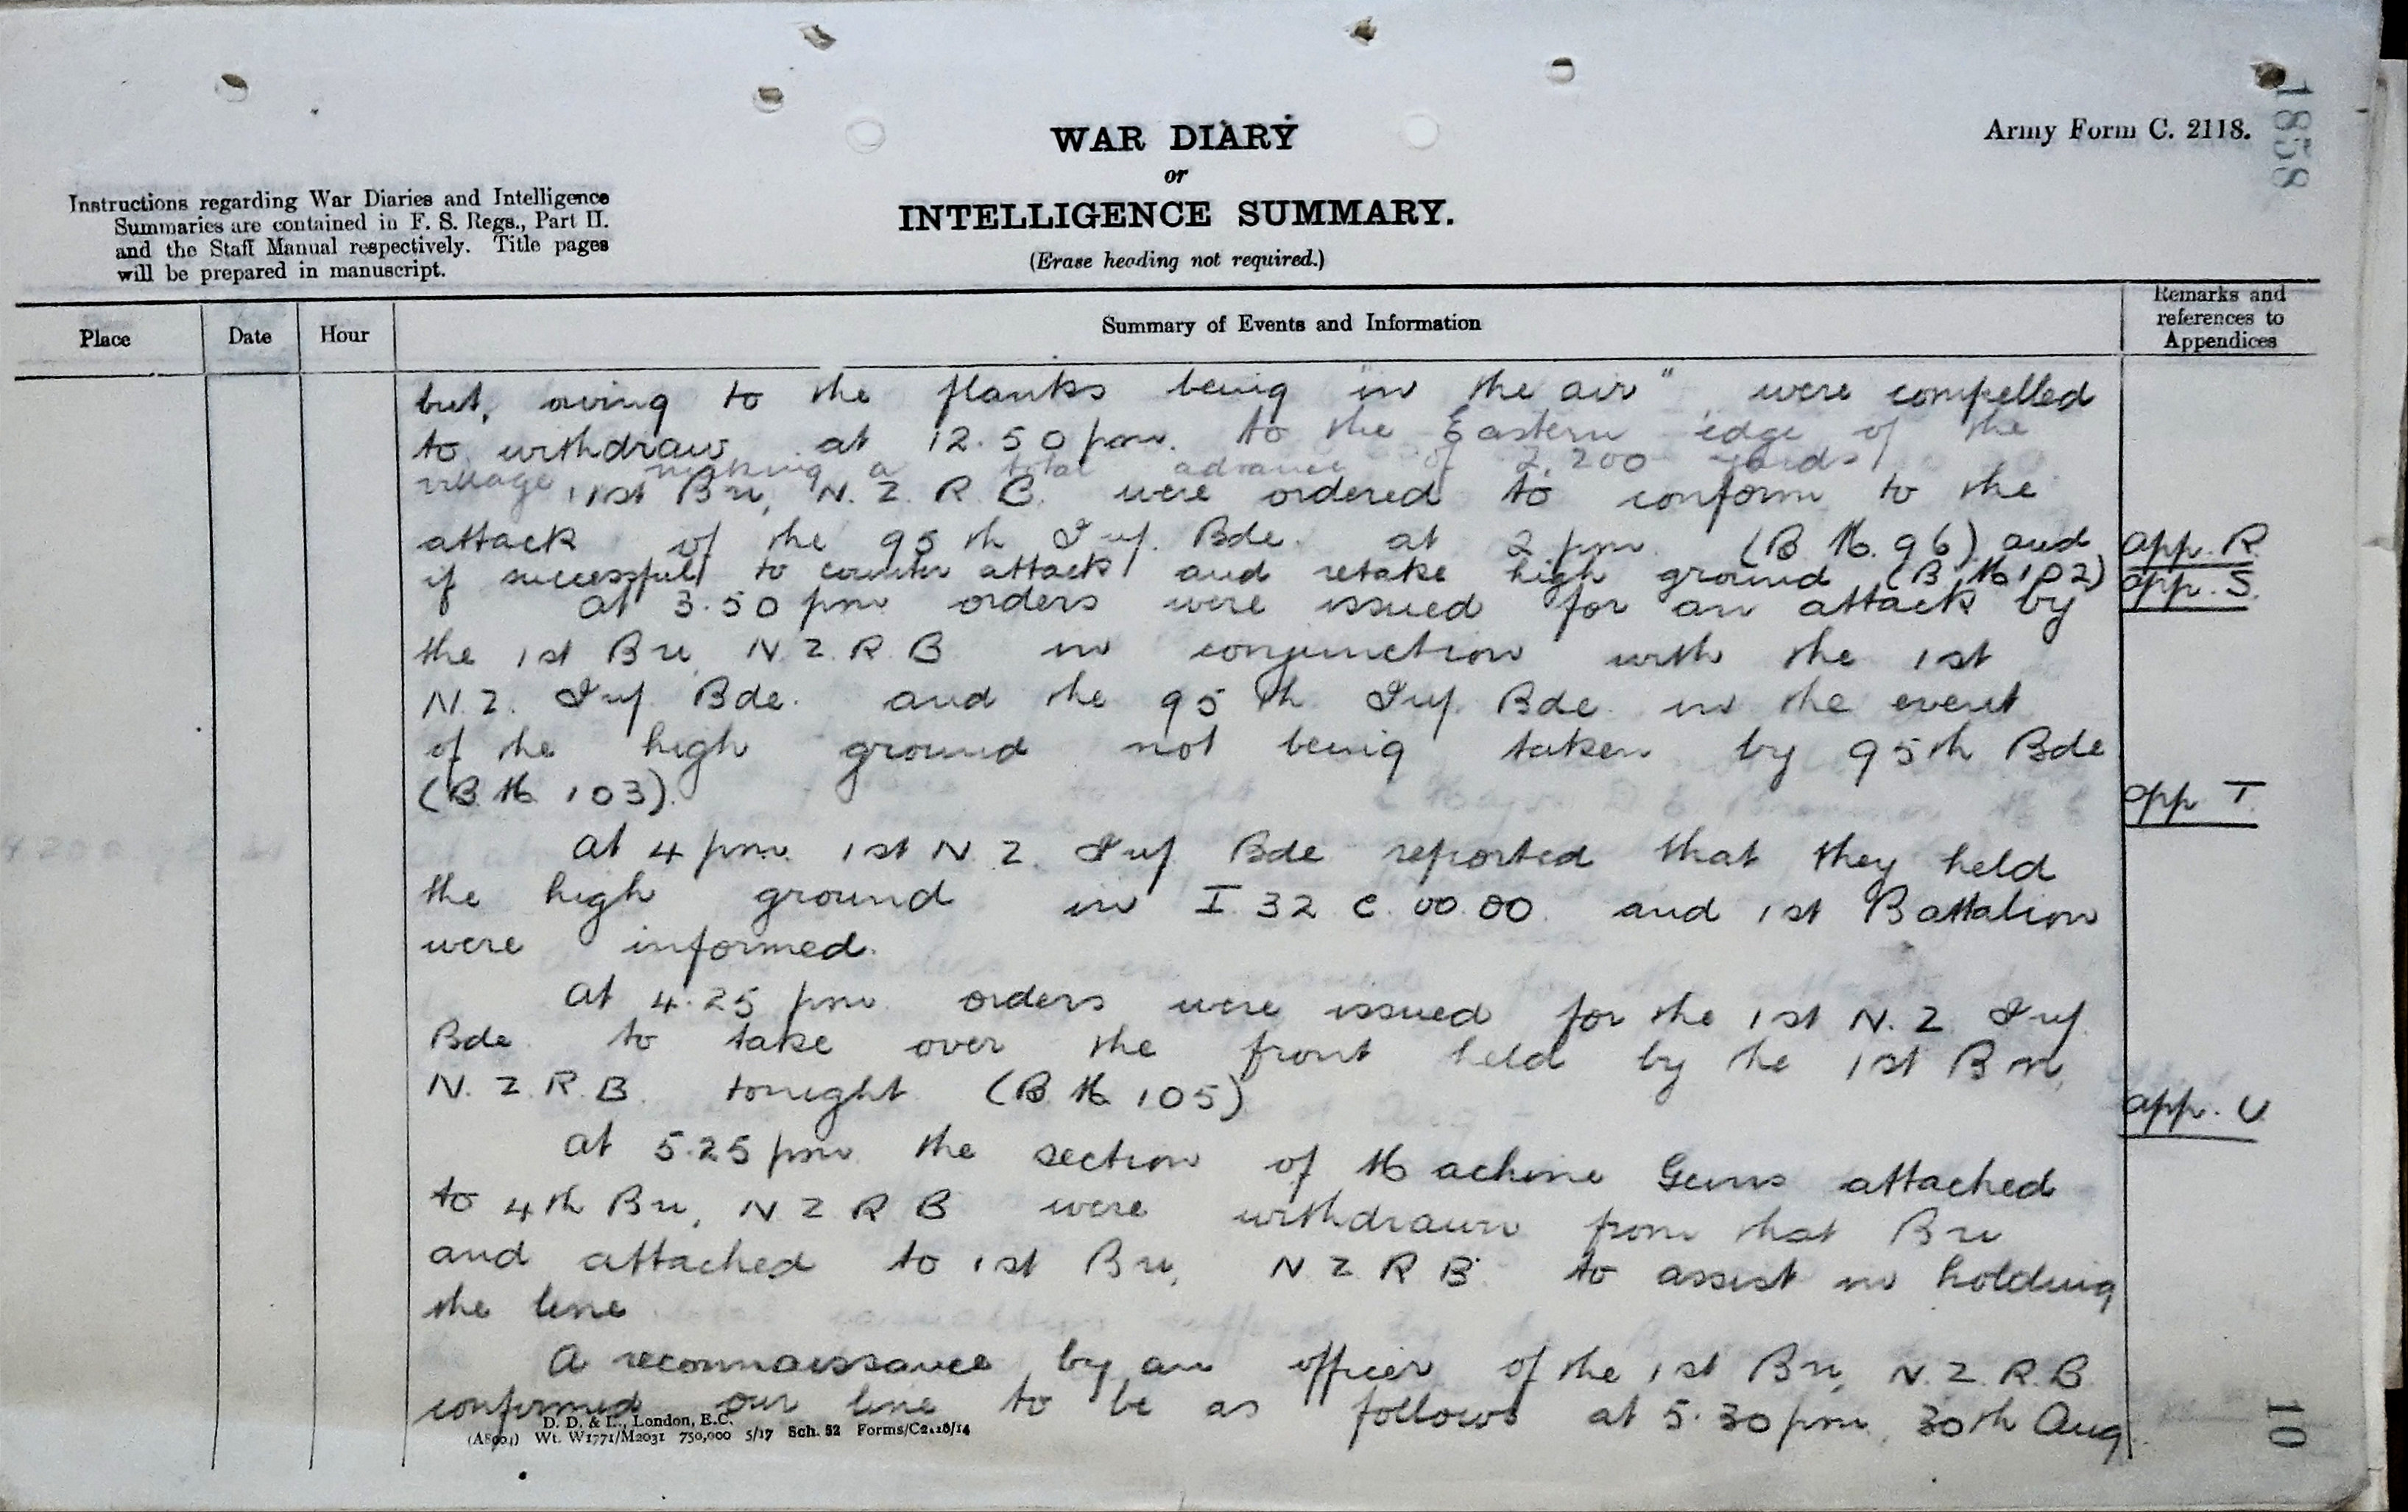 1858
WAR DIARY
or
INTELLIGENCE SUMMARY.
(Erase heading not required.)
Army Form C. 2118.
Instructions regarding War Diaries and Intelligence
Summaries are contained in F. S. Regs., Part II.
and the Staff Manual respectively. Title pages
will be prepared in manuscript.
Place Date Hour Summary of Events and Information Remarks and
references to
Appendices
but, owing to the flanks being "in the air", were compelled
to withdraw at 12.50 pm. to the Eastern edge of the
village making a total advance of 2,200 yards
1st Bn, N.Z.R.B. were ordered to conform to the
attack of the 95th Inf. Bde. at 2 pm. (B.M. 96) and app. R.
if successful to counter attack and retake high ground (B.M. 102) app. S.
at 3.50 pm orders were issued for an attack by
the 1st Bn, N.Z.R.B in conjunction with the 1st
N.Z. Inf Bde. and the 95th Inf. Bde. in the event
of the high ground not being taken by 95th Bde
(B.M. 103). app T.
at 4 pm. 1st N.Z. Inf Bde reported that they held
the high ground in I.32.c.00.00. and 1st Battalion
were informed.
at 4.25 pm. orders were issued for the 1st N.Z Inf.
Bde. to take over the front held by the 1st Bn,
N.Z.R.B. tonight (B.M. 105) app. U.
at 5.25 pm. the section of Machine Guns attached
to 4th Bn, NZRB were withdrawn from that Bn
and attached to 1st Bn, NZRB. to assist in holding
the line
A reconnaissance by an officer of the 1st Bn, N.Z.R.B
confirmed our line to be as follows at 5.30 pm, 30th Aug.
D. D. & L., London, E.C.
(A8004) Wt. W1771/M2031 750,000 5/17 Sch. 52 Forms/C2118/14
10